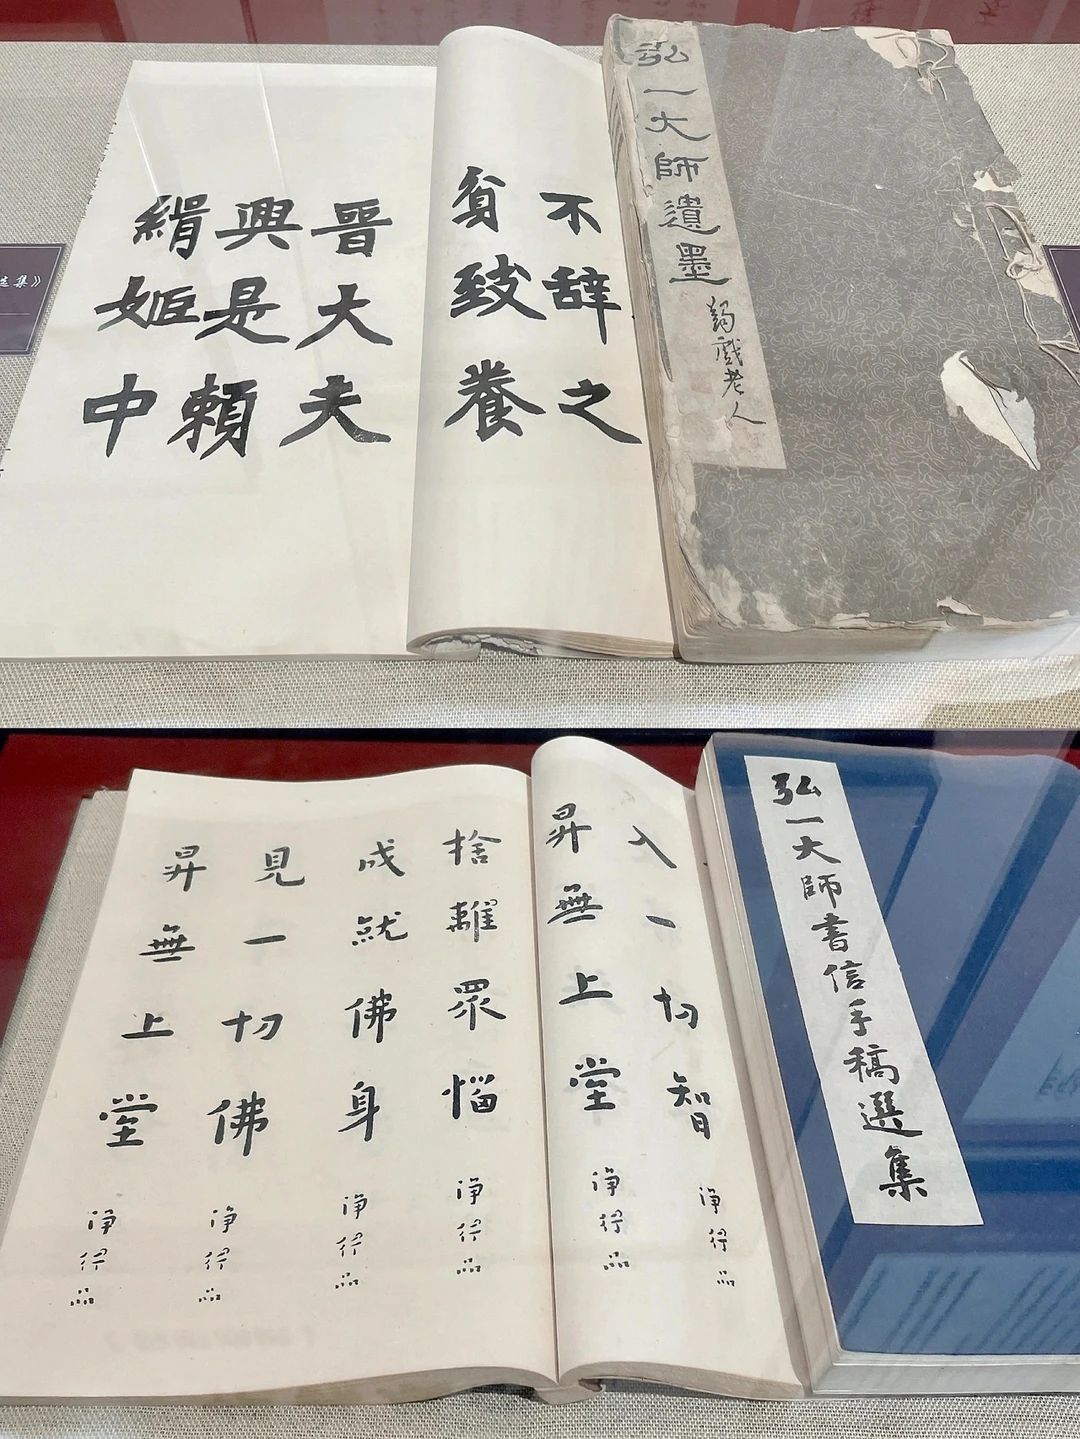 弘一大師遺墨
蠲戲老人
不辞之
貧致養
晉大夫
興是賴
緝姬中
选集》
弘一大師書信手稿選集
入一切智
淨行品
昇無上堂
淨行品
捨離眾惱
淨行品
成就佛身
淨行品
見一切佛
淨行品
昇無上堂
淨行品